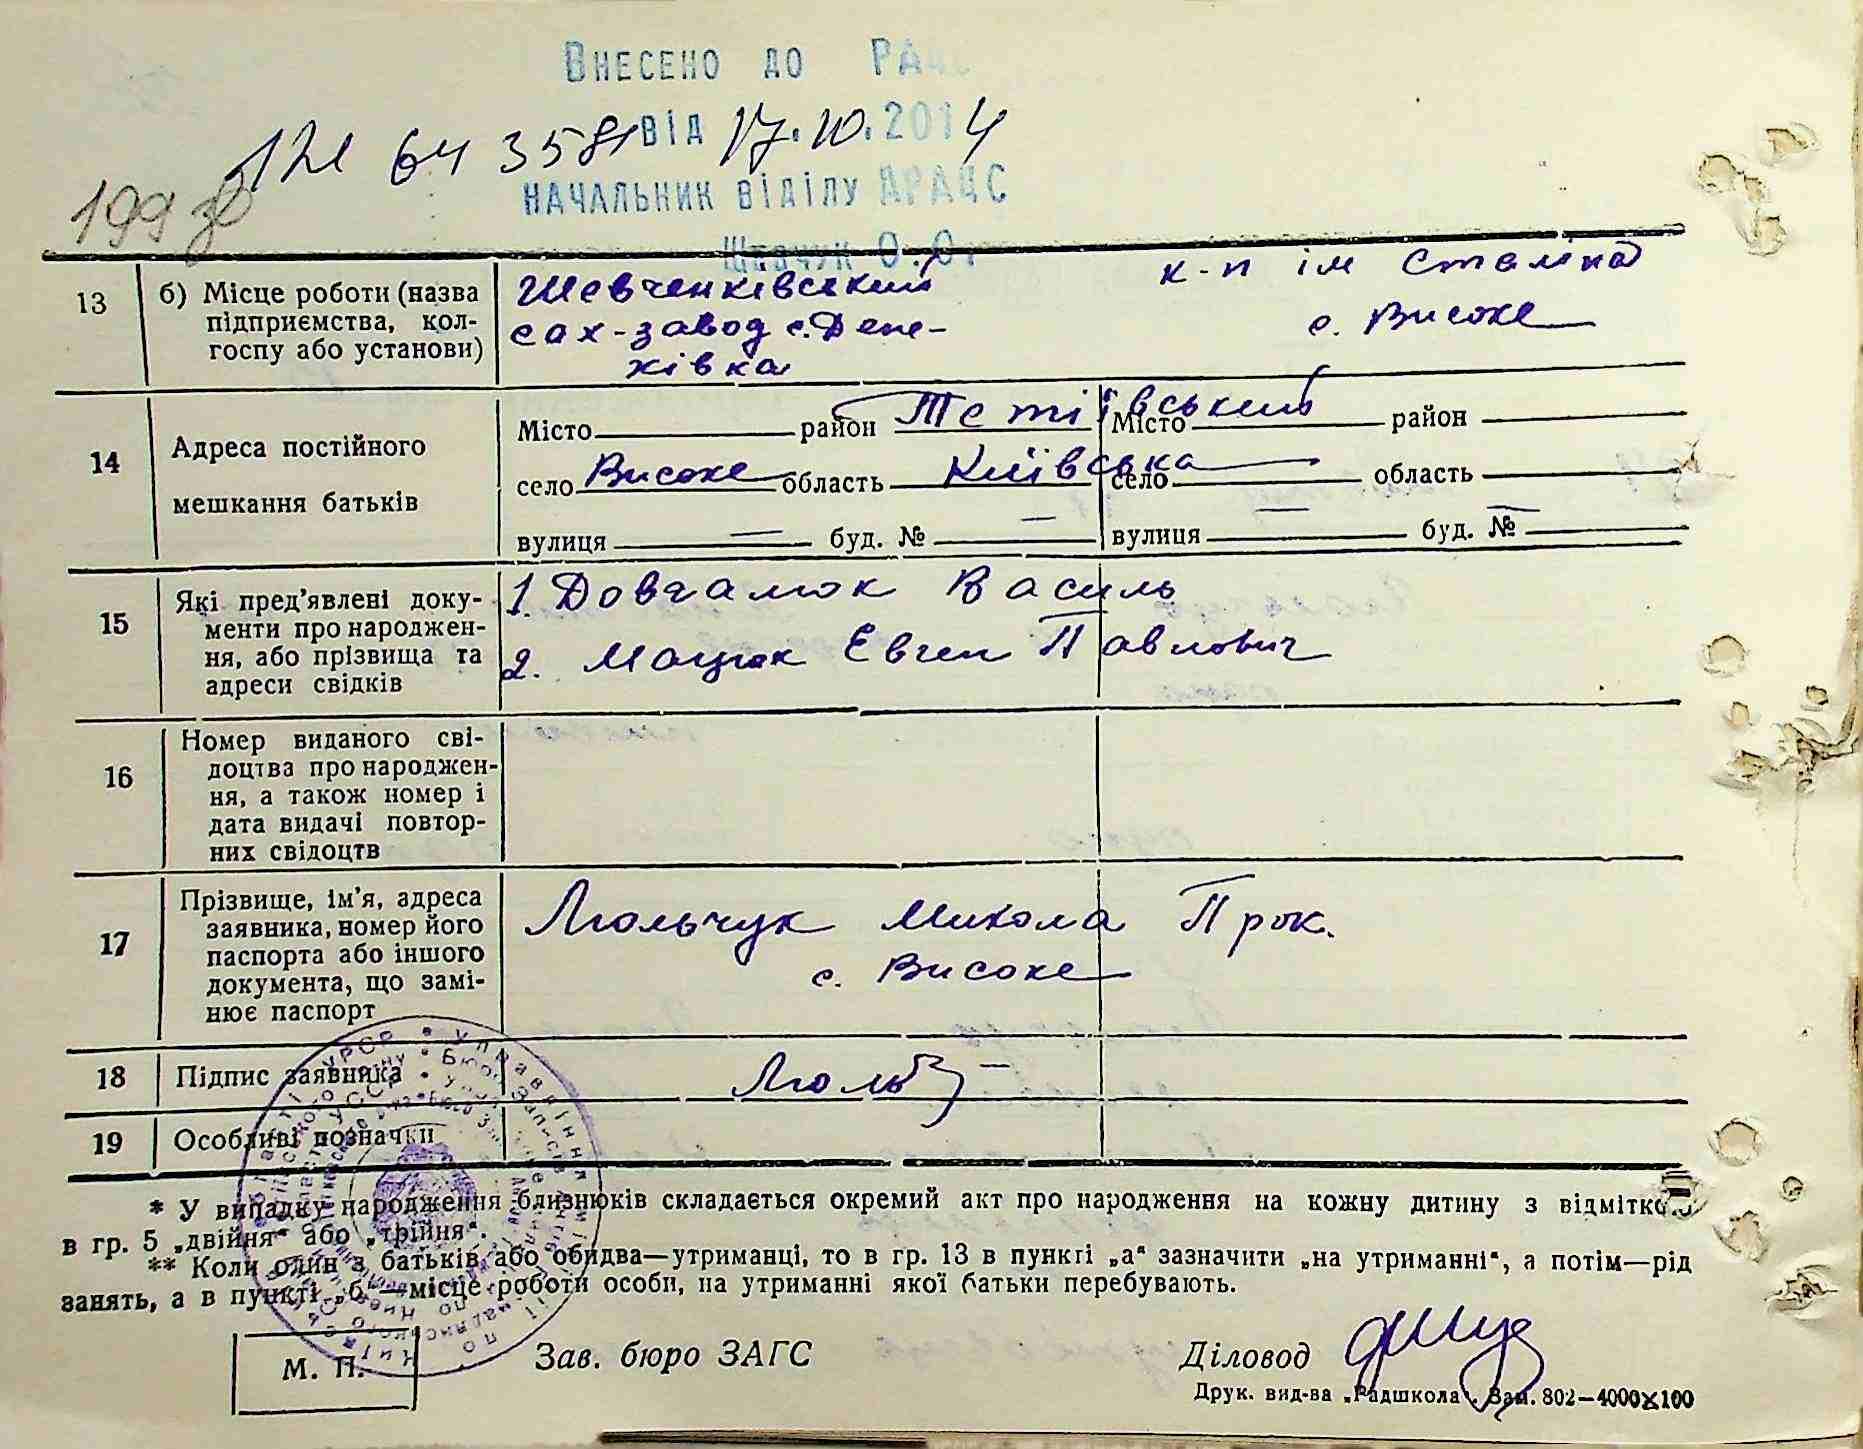 Внесено до РАЦС
64 358 від 17.10.2014
199 зв
начальник відділу ДРАЦС
Шевчук О.О.
13 б) Місце роботи (назва підприємства, кол-
госпу або установи)
Шевченківський к-п ім Сталіна
сах-завод с. Дене- с. Високе
жівка
14 Адреса постійного
мешкання батьків
Місто район Тетіївський Місто район
село Високе область Київська село область
вулиця — буд. № — вулиця — буд. № —
15 Які пред'явлені доку-
менти про народжен-
ня, або прізвища та
адреси свідків
1. Довгалюк Василь
2. Мацюк Євген Павлович
16 Номер виданого сві-
доцтва про народжен-
ня, а також номер і
дата видачі повтор-
них свідоцтв
17 Прізвище, ім'я, адреса
заявника, номер його
паспорта або іншого
документа, що замі-
нює паспорт
Люльчук Микола Прок.
с. Високе
18 Підпис заявника Люль
19 Особливі позначки
* У випадку народження близнюків складається окремий акт про народження на кожну дитину з відміткою
в гр. 5 „двійня“ або „трійня“.
** Коли один з батьків або обидва—утриманці, то в гр. 13 в пункті „а“ зазначити „на утриманні“, а потім—рід
занять, а в пункті „б“—місце роботи особи, на утриманні якої батьки перебувають.
М. П. Зав. бюро ЗАГС Діловод
Друк. вид-ва „Радшкола“. Зам. 802—4000×100